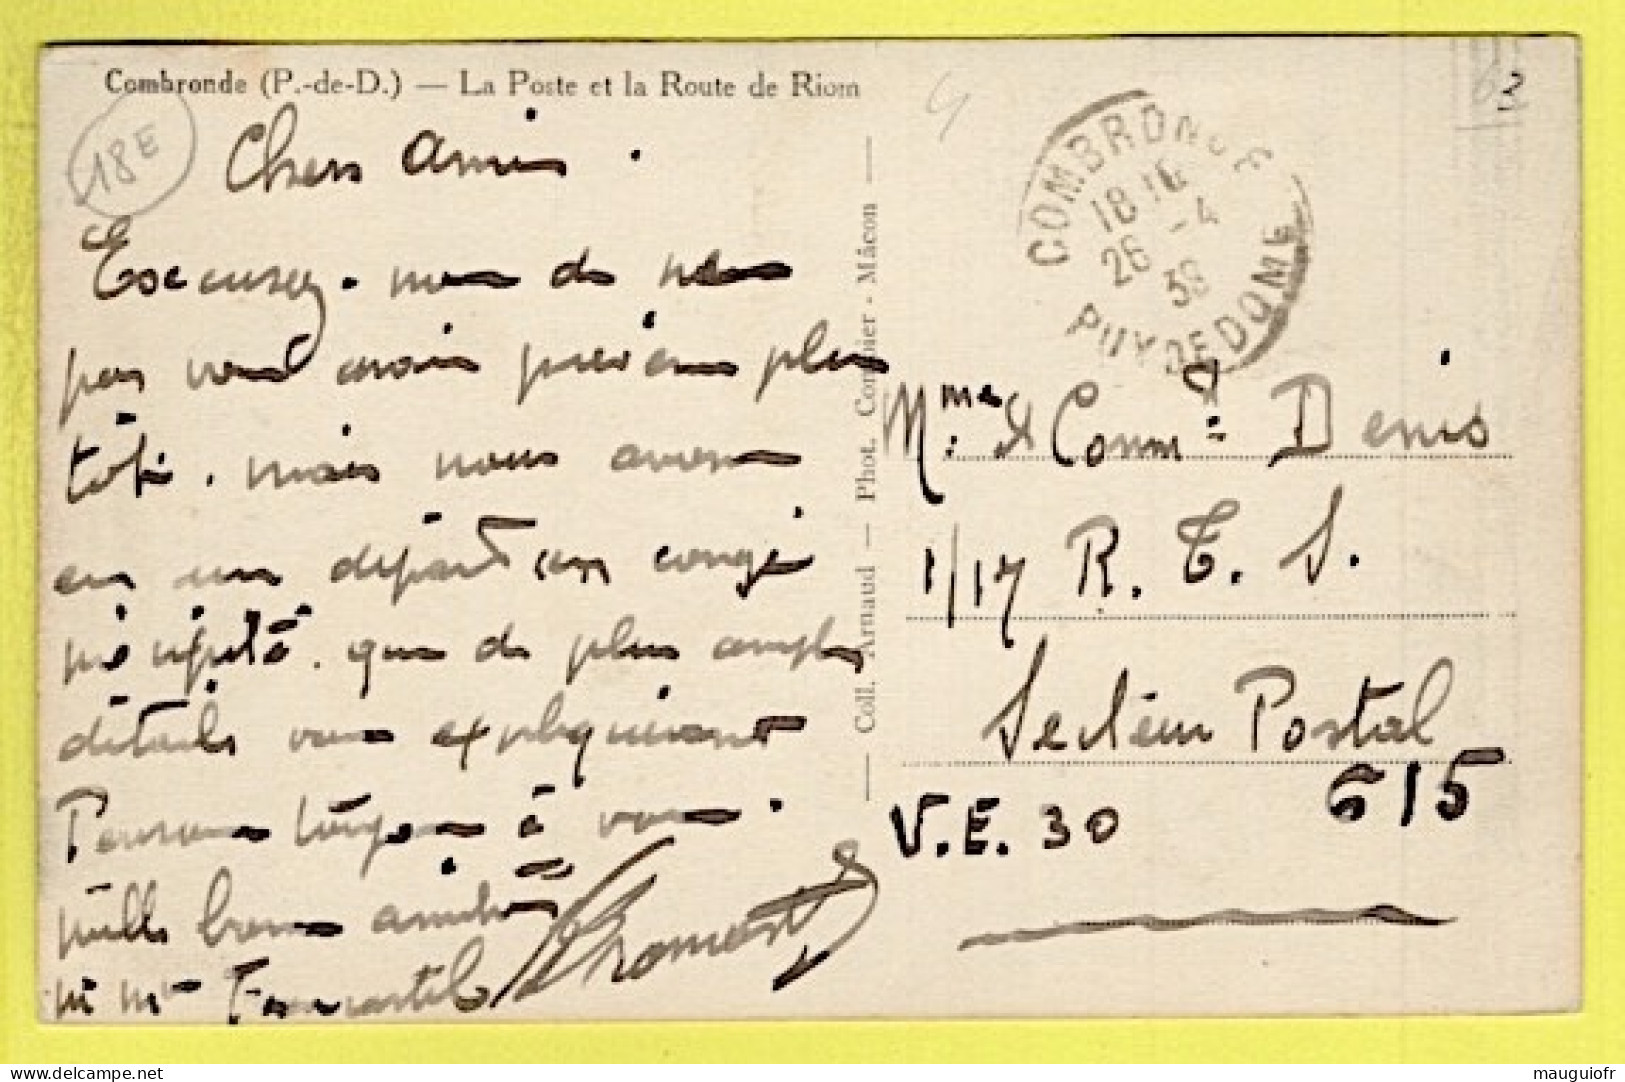 Combronde (P.-de-D.) — La Poste et la Route de Riom
18E
Chers Amis.
Excusez-nous de ne
pas vous avoir prévenus plus
tôt. mais nous avons
eu un départ en congé
précipité. que de plus amples
détails vous expliqueront
Pensons toujours à vous.
mille bonnes amitiés
M Mme
Coll. Arnaud — Phot. Combier - Mâcon
COMBRONDE
18
26 -4
39
PUY DE DOME
3
Mme & Comm. Denis
1/17 R.T.S.
Secteur Postal
615
V.E. 30
mauguiofr
Delcampe.net